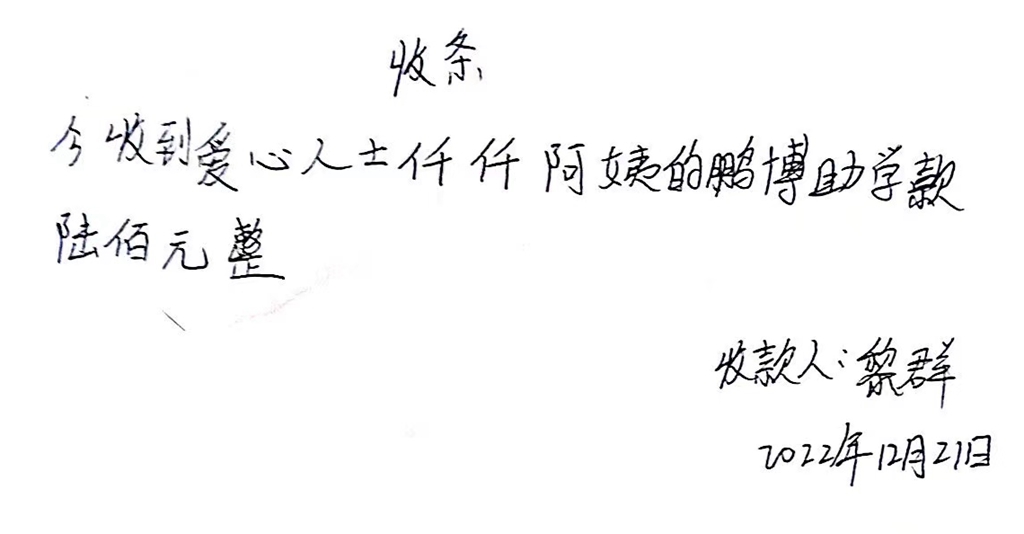 收条
今收到爱心人士仟仟阿姨的鹏博助学款
陆佰元整
收款人：黎群
2022年12月21日